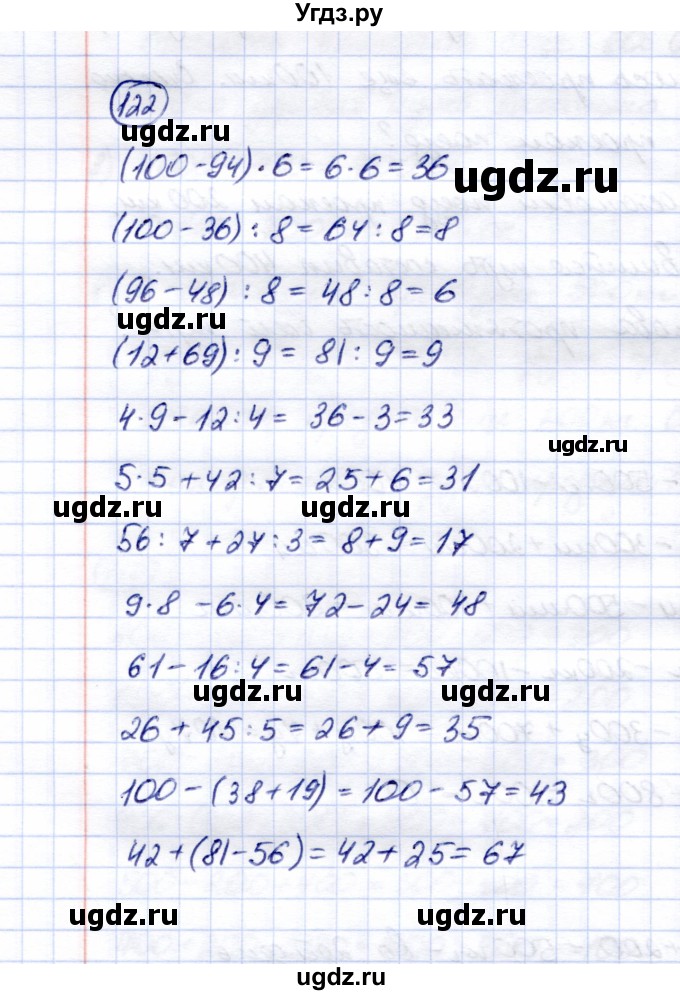 Угдз.ру
122
ugdz.ru
(100-94)·6=6·6=36
ugdz.ru
(100-36):8=64:8=8
(96-48):8=48:8=6
ugdz.ru
(12+69):9=81:9=9
4·9-12:4= 36-3=33
ugdz.ru
5·5+42:7=25+6=31
ugdz.ru ugdz.ru
56:7+27:3=8+9=17
9·8 -6·4=72-24=48
61-16:4=61-4=57
ugdz.ru ugdz.ru
26+45:5=26+9=35
100-(38+19)=100-57=43
42+(81-56)=42+25=67
ugdz.ru ugdz.ru
ugdz.ru